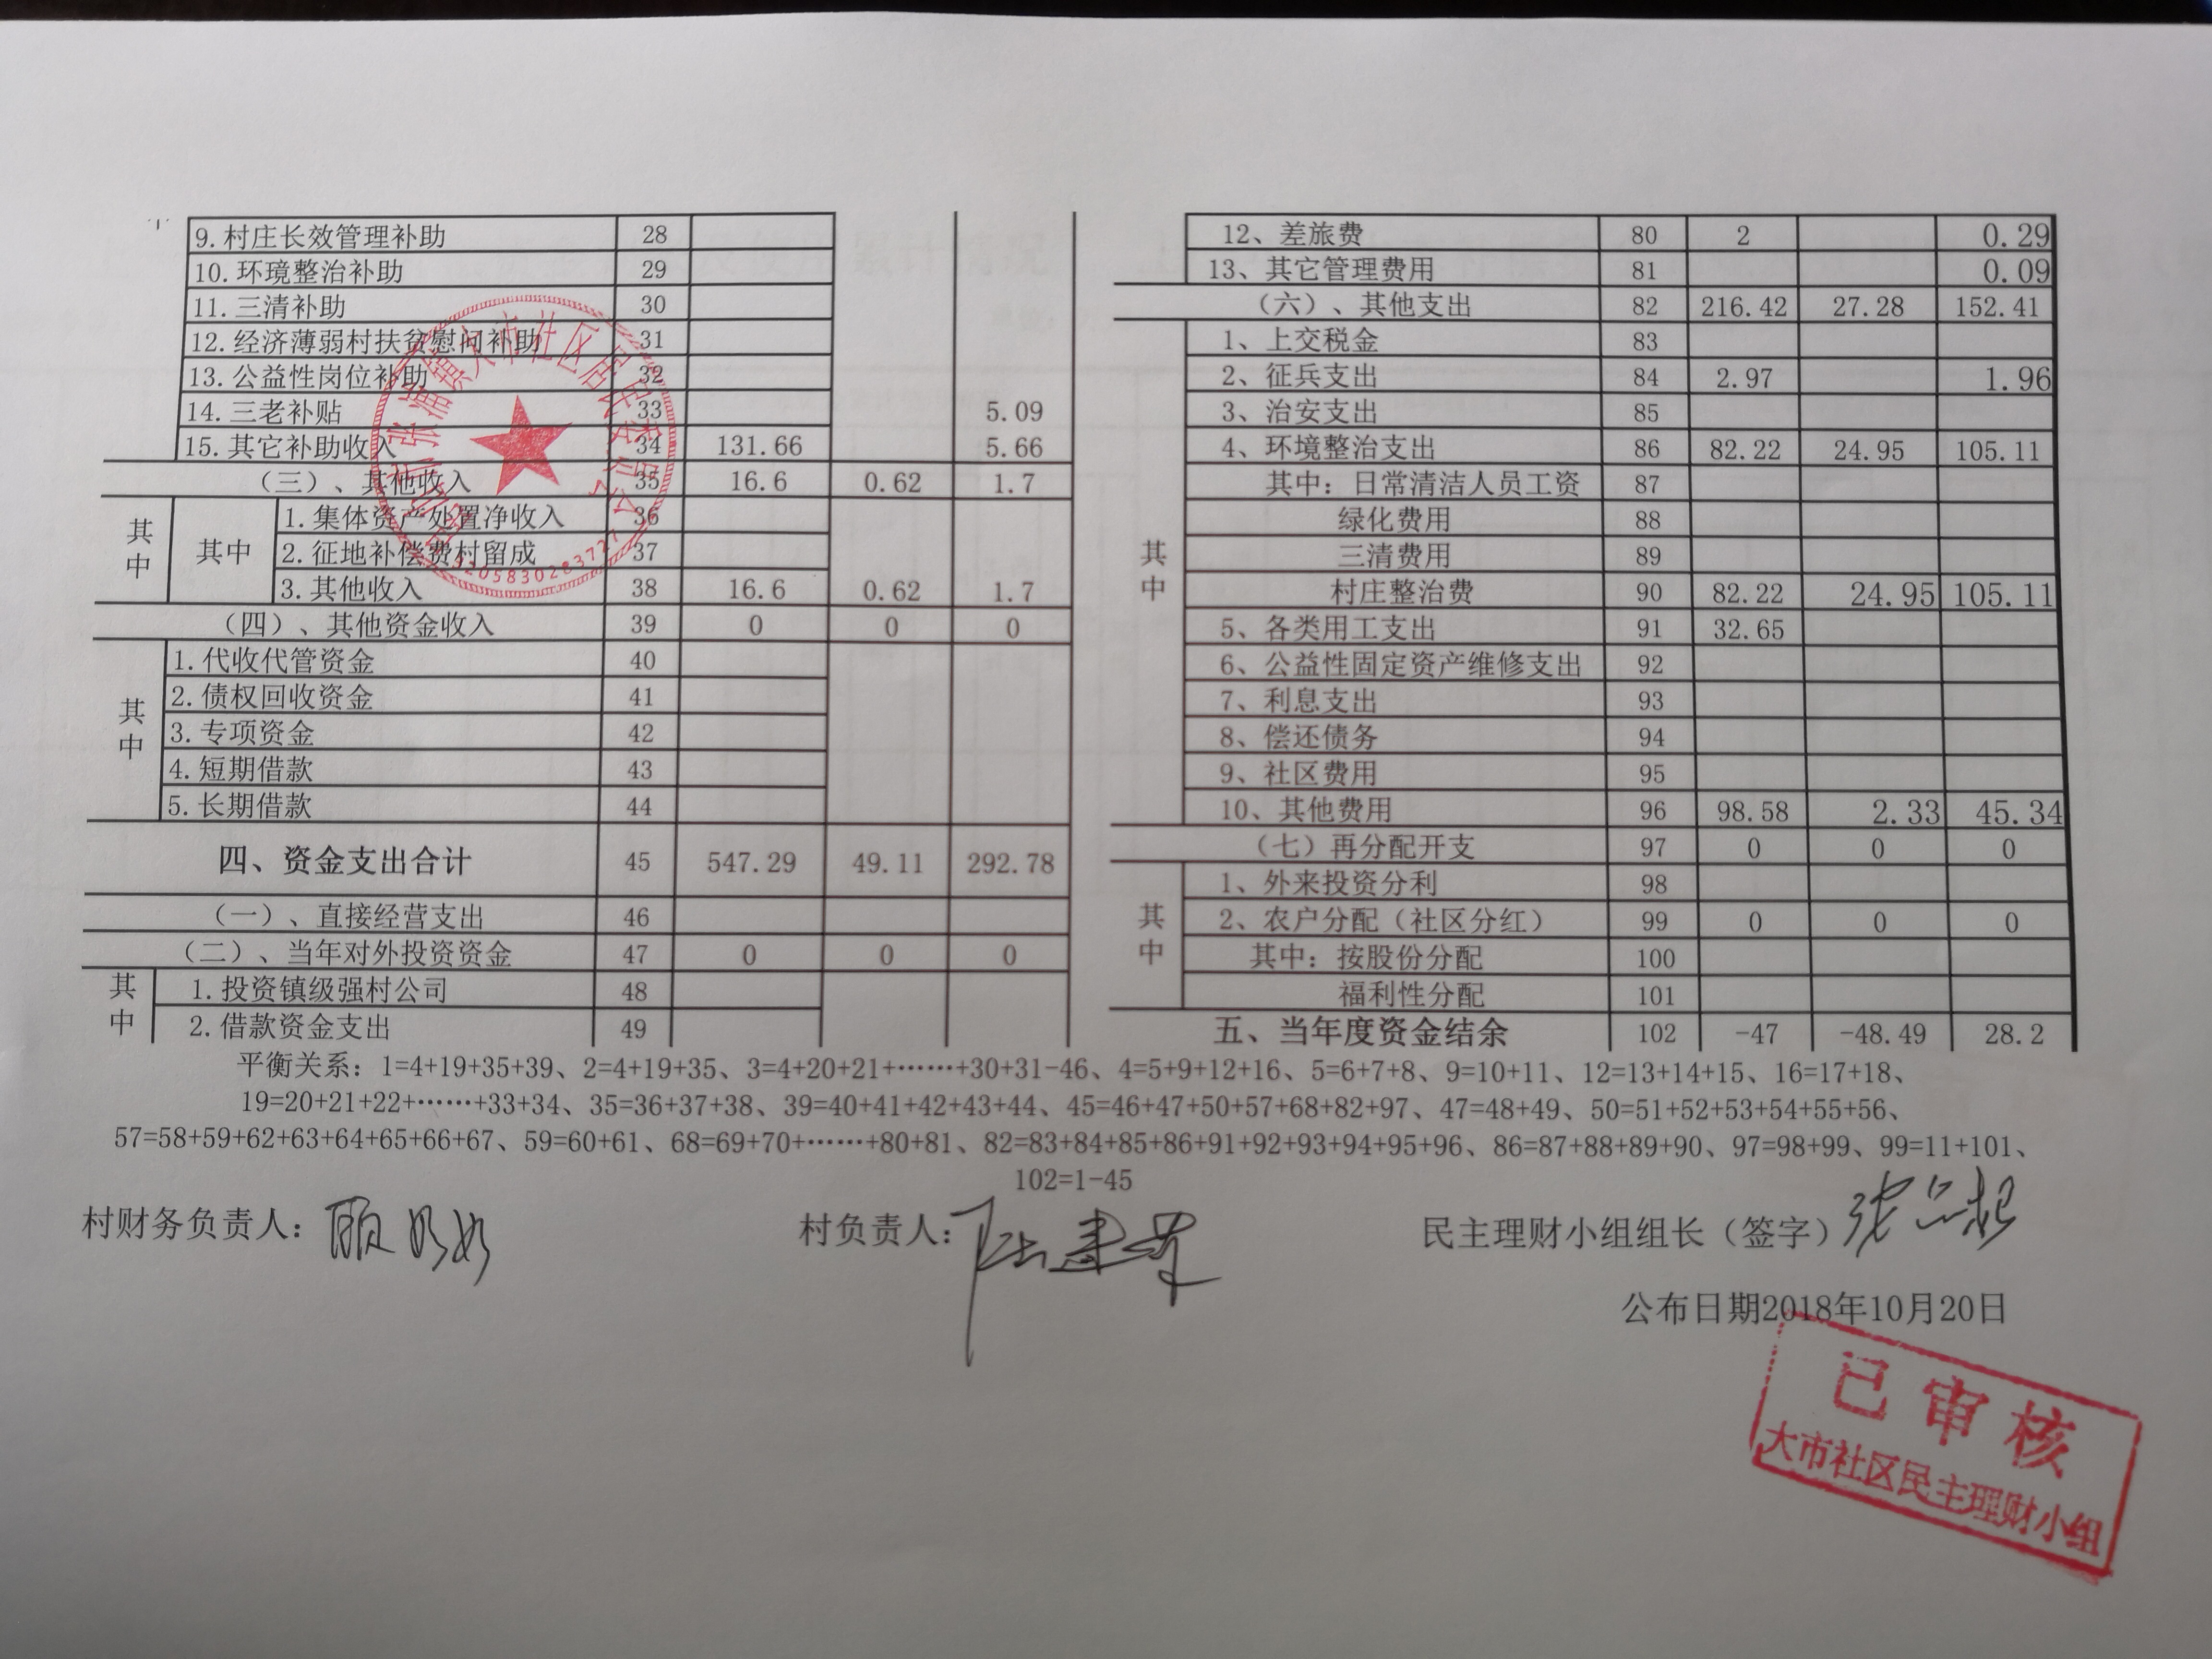 9.村庄长效管理补助 28
10.环境整治补助 29
11.三清补助 30
12.经济薄弱村扶贫慰问补助 31
13.公益性岗位补助 32
14.三老补贴 33 5.09
15.其它补助收入 34 131.66 5.66
（三）、其他收入 35 16.6 0.62 1.7
其中 其中 1.集体资产处置净收入 36
2.征地补偿费村留成 37
3.其他收入 38 16.6 0.62 1.7
（四）、其他资金收入 39 0 0 0
其中 1.代收代管资金 40
2.债权回收资金 41
3.专项资金 42
4.短期借款 43
5.长期借款 44
四、资金支出合计 45 547.29 49.11 292.78
（一）、直接经营支出 46
（二）、当年对外投资资金 47 0 0 0
其中 1.投资镇级强村公司 48
2.借款资金支出 49
12、差旅费 80 2 0.29
13、其它管理费用 81 0.09
（六）、其他支出 82 216.42 27.28 152.41
其中 1、上交税金 83
2、征兵支出 84 2.97 1.96
3、治安支出 85
4、环境整治支出 86 82.22 24.95 105.11
其中：日常清洁人员工资 87
绿化费用 88
三清费用 89
村庄整治费 90 82.22 24.95 105.11
5、各类用工支出 91 32.65
6、公益性固定资产维修支出 92
7、利息支出 93
8、偿还债务 94
9、社区费用 95
10、其他费用 96 98.58 2.33 45.34
（七）再分配开支 97 0 0 0
其中 1、外来投资分利 98
2、农户分配（社区分红） 99 0 0 0
其中：按股份分配 100
福利性分配 101
五、当年度资金结余 102 -47 -48.49 28.2
平衡关系：1=4+19+35+39、2=4+19+35、3=4+20+21+……+30+31-46、4=5+9+12+16、5=6+7+8、9=10+11、12=13+14+15、16=17+18、
19=20+21+22+……+33+34、35=36+37+38、39=40+41+42+43+44、45=46+47+50+57+68+82+97、47=48+49、50=51+52+53+54+55+56、
57=58+59+62+63+64+65+66+67、59=60+61、68=69+70+……+80+81、82=83+84+85+86+91+92+93+94+95+96、86=87+88+89+90、97=98+99、99=11+101、
102=1-45
村财务负责人： 村负责人： 民主理财小组组长（签字）
公布日期2018年10月20日
已审核
大市社区民主理财小组